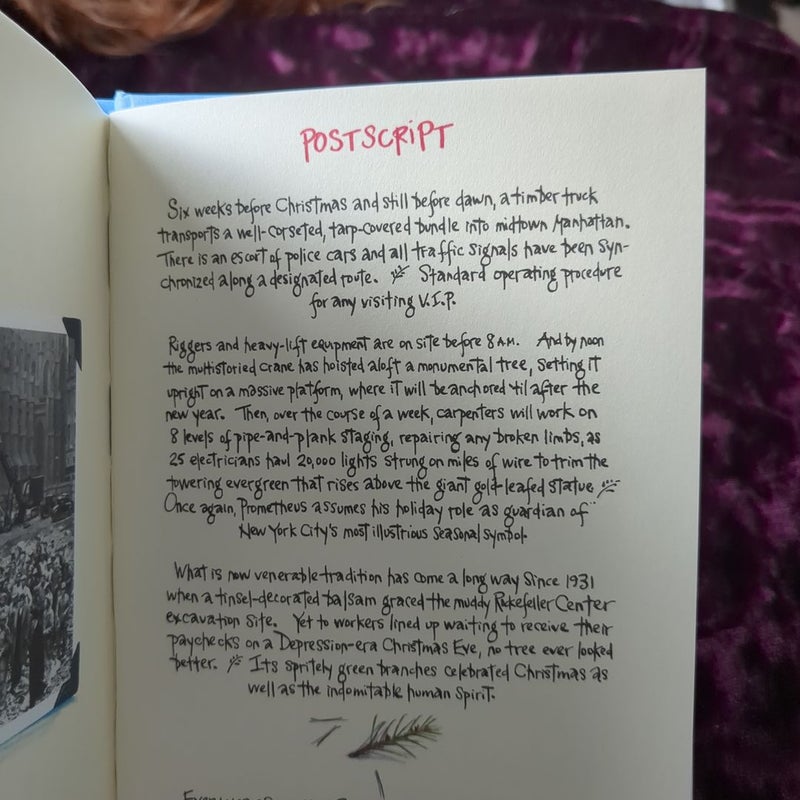 POSTSCRIPT
Six weeks before Christmas and still before dawn, a timber truck
transports a well-corseted, tarp-covered bundle into midtown Manhattan.
There is an escort of police cars and all traffic signals have been syn-
chronized along a designated route. Standard operating procedure
for any visiting V.I.P.
Riggers and heavy-lift equipment are on site before 8 A.M. And by noon
the multistoried crane has hoisted aloft a monumental tree, setting it
upright on a massive platform, where it will be anchored 'til after the
new year. Then, over the course of a week, carpenters will work on
8 levels of pipe-and-plank staging, repairing any broken limbs, as
25 electricians haul 20,000 lights strung on miles of wire to trim the
towering evergreen that rises above the giant gold-leafed statue
Once again, Prometheus assumes his holiday role as guardian of
New York City's most illustrious seasonal symbol.
What is now venerable tradition has come a long way since 1931
when a tinsel-decorated balsam graced the muddy Rockefeller Center
excavation site. Yet to workers lined up waiting to receive their
paychecks on a Depression-era Christmas Eve, no tree ever looked
better. Its spritely green branches celebrated Christmas as
well as the indomitable human spirit.